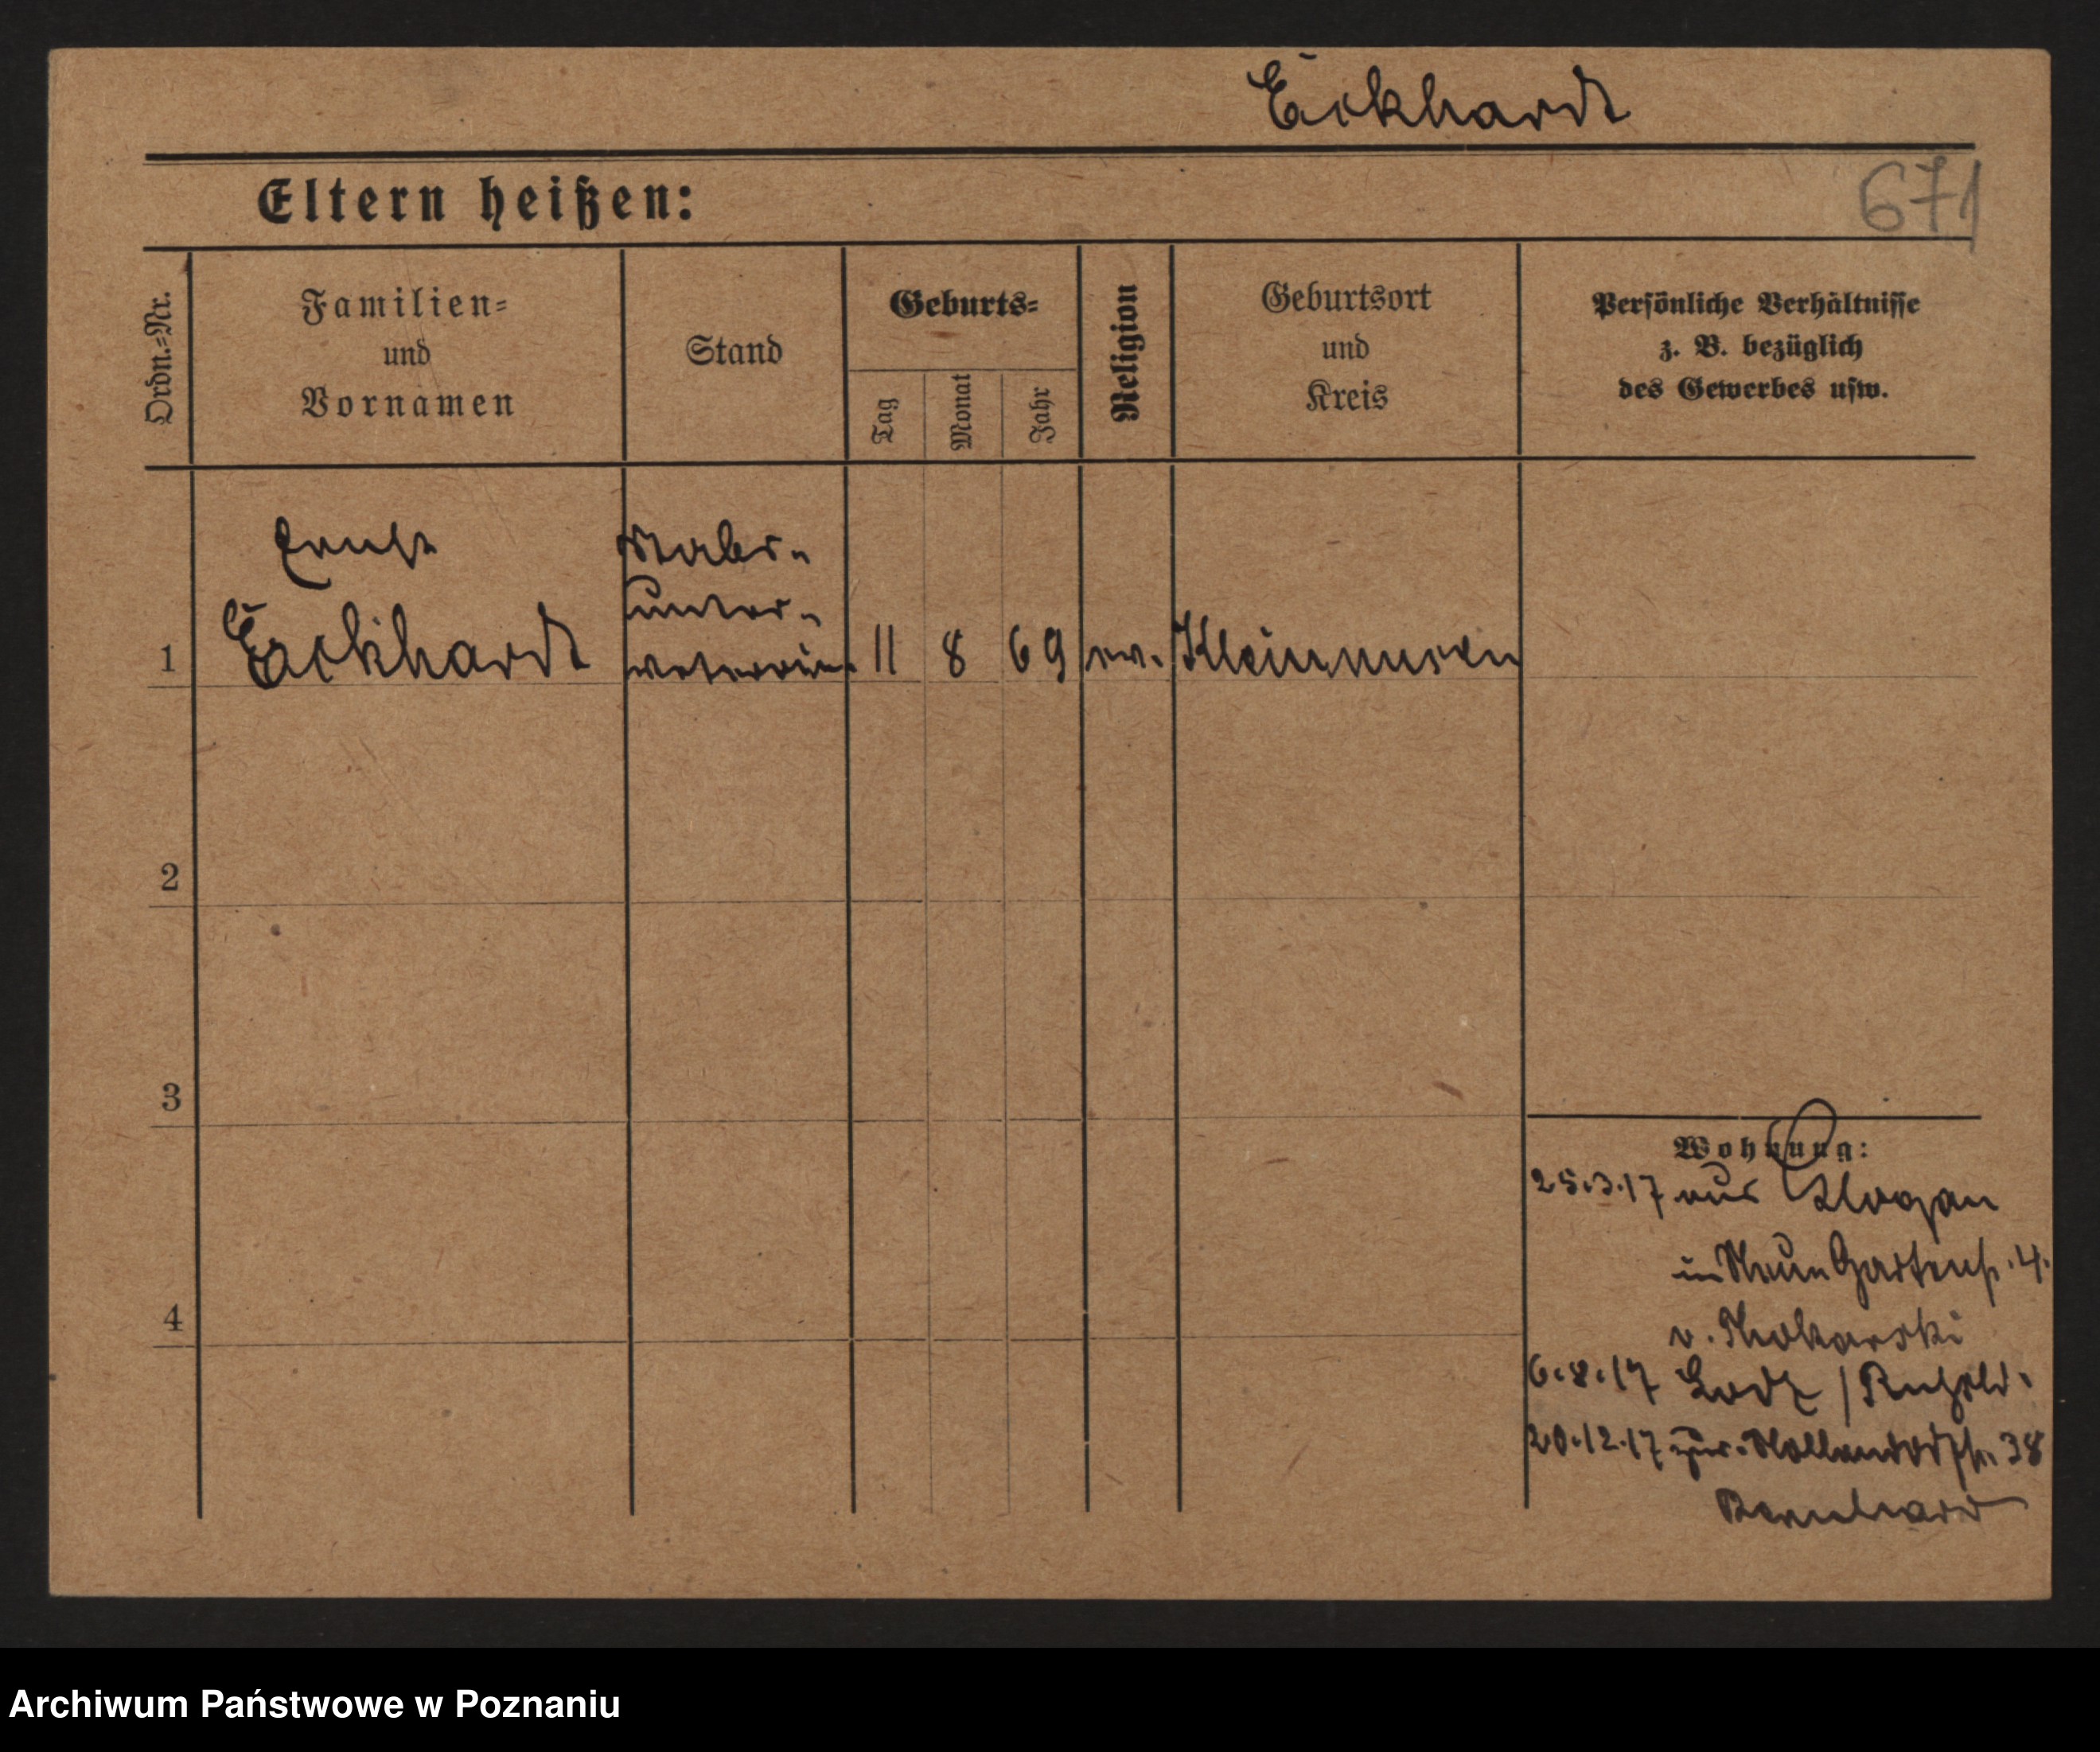 Eckhardt
Eltern heißen:
671
Ordn.-Nr.
Familien-
und
Vornamen
Stand
Geburts-
Tag
Monat
Jahr
Religion
Geburtsort
und
Kreis
Persönliche Verhältnisse
z. B. bezüglich
des Gewerbes usw.
Ernst
Eckhardt
1
11 8 69 ev.
2
3
4
Wohnung:
25.3.17 aus Glogau
in Neue Gartenstr. 4.
6.8.17 Lodz /
20.12.17 zur. 38
Bernhard
Archiwum Państwowe w Poznaniu